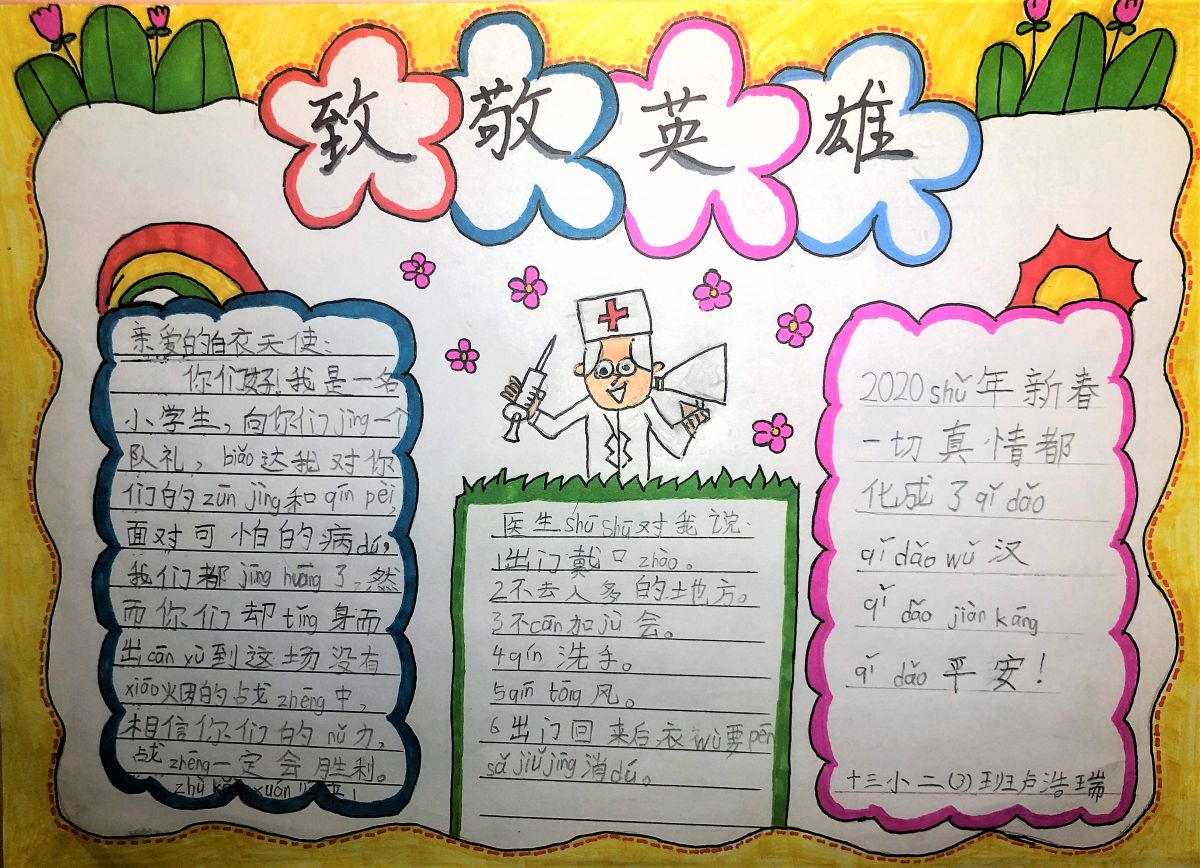 致敬英雄
亲爱的白衣天使:
你们好!我是一名
小学生,向你们jìng一个
队礼,biǎo达我对你
们的zūn jìng和qīn pèi,
面对可怕的病dú,
我们都jīng huāng了,然
而你们却tǐng身而
出cān yù到这场没有
xiāo火因的战zhēng中,
相信你们的nǔ力,
战zhēng一定会胜利。
医生shū shū对我说:
1出门戴口zhào。
2不去人多的土地方。
3不cān加jù会。
4qín洗手。
5qín tōng风。
6出门回来后衣wù要pēn
sǎ jiǔ jīng消dú。
2020 shǔ年新春
一切真情都
化成了qǐ dǎo
qǐ dǎo wǔ汉
qǐ dǎo jiàn kāng
qǐ dǎo平安!
十三小二(3)班卢浩瑞